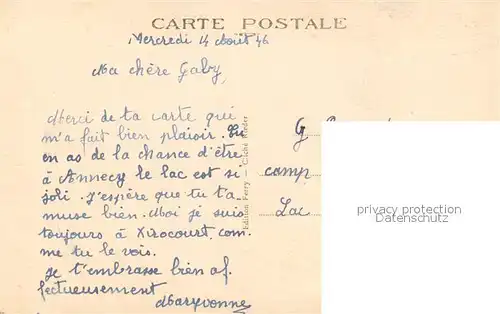 CARTE POSTALE
Mercredi 14 Août 46
Ma chère Gaby,
Merci de ta carte qui
m'a fait bien plaisir. Tu
en as de la chance d'être
à Annecy le lac est si
joli. J'espère que tu t'a
muse bien. Moi je suis
toujours à Xirocourt com
me tu le vois.
Je t'embrasse bien af
fectueusement
Maryvonne
Edition Ferry — Cliché
G
camp
Lac
privacy protection